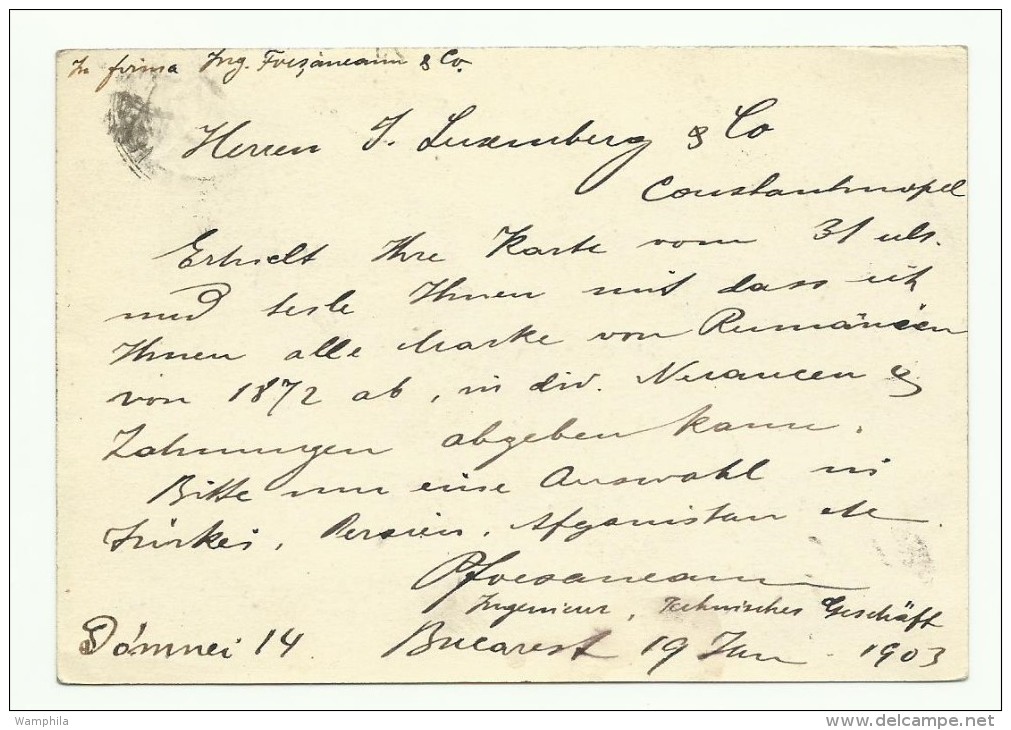 In firma Ing. Foezăneanu & Co.
Herren J. Luxemburg & Co
Constantinopel
Erhielt Ihre Karte vom 31 uls.
und teile Ihnen mit dass ich
Ihnen alle Marke von Rumänien
von 1872 ab, in div. Nuancen &
Zahnungen abgeben kann.
Bitte um eine Auswahl in
Türkei, Persien, Afganistan etc
Ingenieur, Technisches Geschäft
Dómnei 14 Bucarest 19 1903
Wamphila
delcampe.net